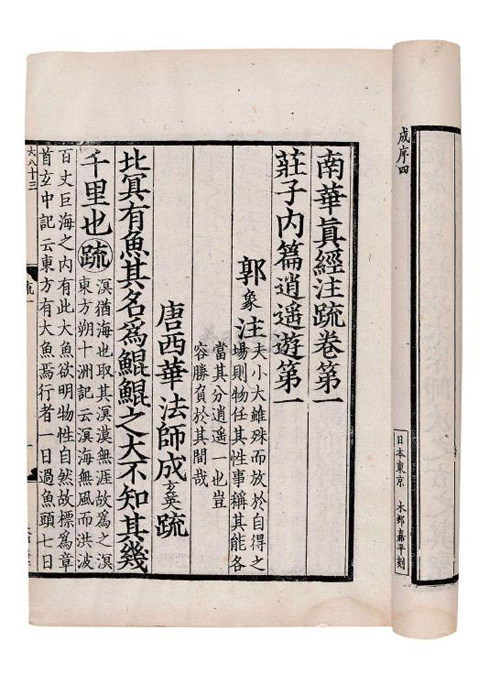 成序四
日本東京 木邨嘉平刻
南華真經注疏卷第一
莊子內篇逍遙遊第一
郭象注
夫小大雖殊而放於自得之
場則物任其性事稱其能各
當其分逍遙一也豈
容勝負於其間哉
唐西華法師成玄英疏
北冥有魚其名爲鯤鯤之大不知其幾
千里也疏
溟猶海也取其溟漠無涯故爲之溟
東方朔十洲記云溟海無風而洪波
百丈巨海之內有此大魚欲明物性自然故標爲章
首玄中記云東方有大魚焉行者一日過魚頭七日